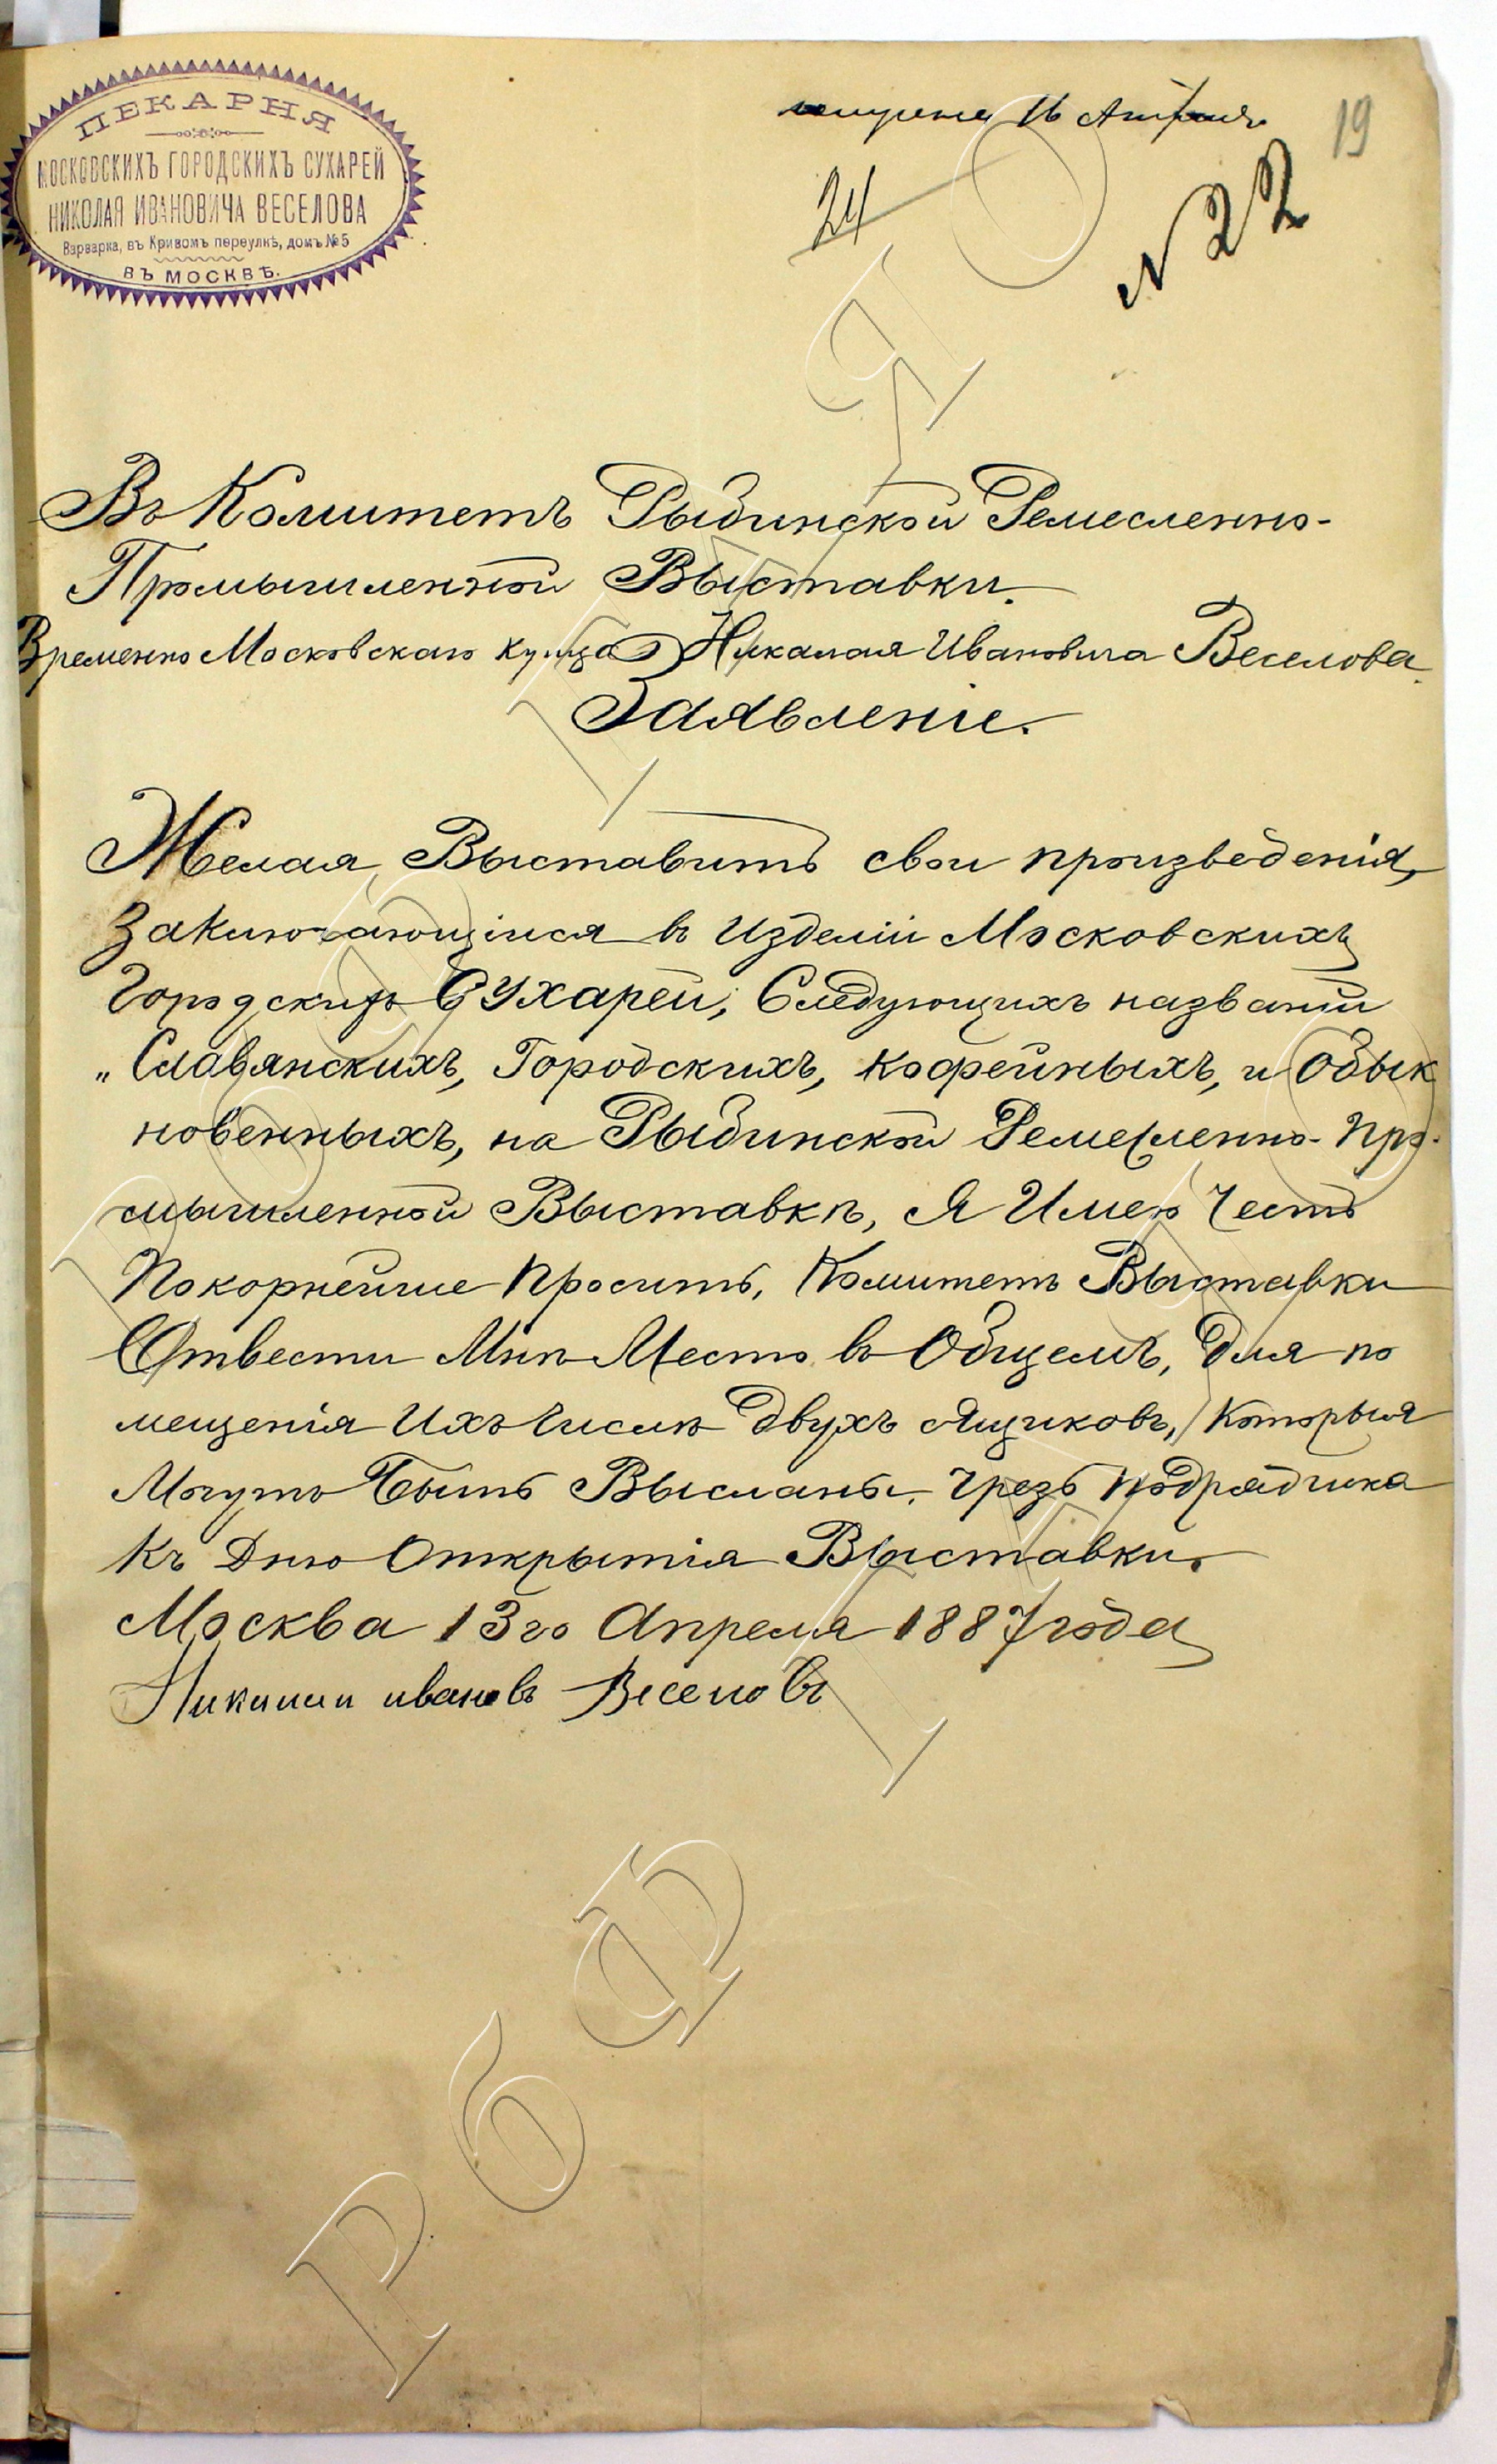 ПЕКАРНЯ
МОСКОВСКИХЪ ГОРОДСКИХЪ СУХАРЕЙ
НИКОЛАЯ ИВАНОВИЧА ВЕСЕЛОВА
Варварка, въ Кривомъ переулкѣ, домъ №5
ВЪ МОСКВѢ.
16 Апреля
19
24
N 22
Въ Комитетъ Рыбинской Ремесленно-
Промышленной Выставки.
Временно Московскаго Купца Николая Ивановича Веселова
Заявленіе.
Желая Выставить свои произведенія,
Заключающіися въ Изделіи Московскихъ
Городскихъ Сухарей, Следующихъ названій
„Славянскихъ, Городскихъ, кофейныхъ, и Обык
новенныхъ, на Рыбинской Ремесленно-Про-
мышленной Выставкѣ, Я Имею Честь
Покорнейше Просить, Комитетъ Выставки
Отвести Мнѣ Место въ Общемъ, Для по
мещенія Ихъ Числѣ Двухъ Ящиковъ, Которыя
Могутъ Быть Высланы. Чрезъ Подрядчика
Къ Дню Открытія Выставки.
Москва 13го Апреля 1887 года
Николай Ивановъ Веселовъ